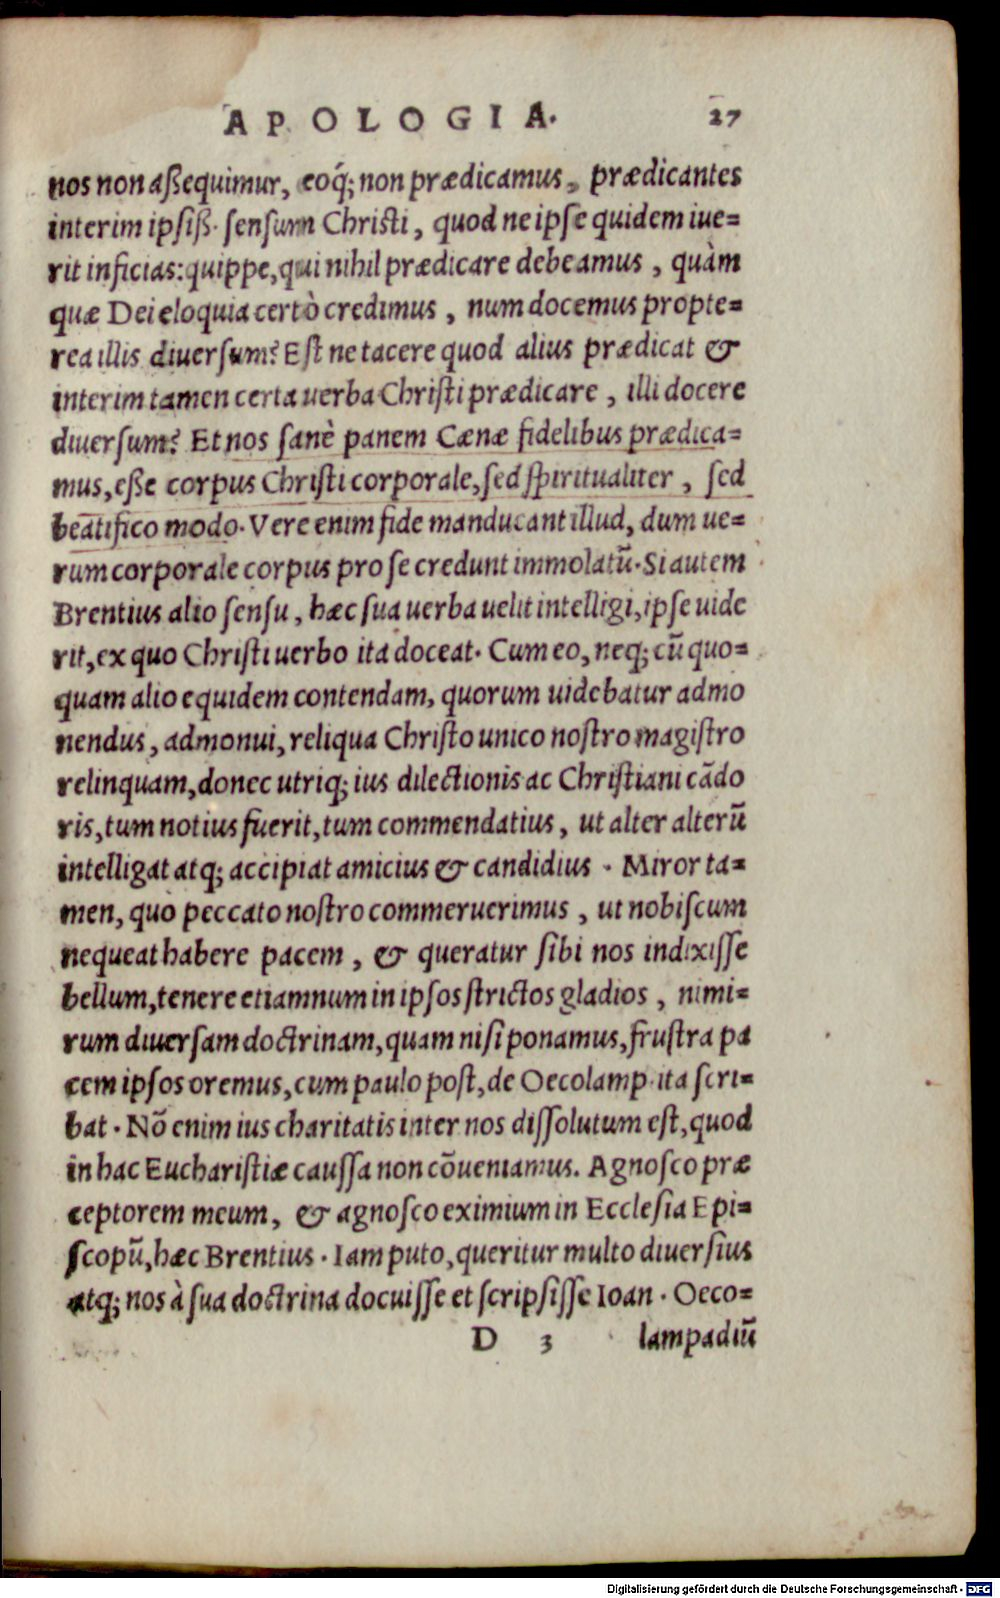 APOLOGIA. 27
nos non aßequimur, eoq́; non prædicamus, prædicantes
interim ipsiß. sensum Christi, quod ne ipse quidem iue=
rit inficias: quippe, qui nihil prædicare debeamus, quàm
quæ Dei eloquia certò credimus, num docemus propte=
rea illis diuersum? Est ne tacere quod alius prædicat &
interim tamen certa uerba Christi prædicare, illi docere
diuersum? Et nos sanè panem Cænæ fidelibus prædica=
mus, eße corpus Christi corporale, sed spiritualiter, sed
beatifico modo. Vere enim fide manducant illud, dum ue=
rum corporale corpus pro se credunt immolatū. Si autem
Brentius alio sensu, hæc sua uerba uelit intelligi, ipse uide
rit, ex quo Christi uerbo ita doceat. Cum eo, neq; cū quo=
quam alio equidem contendam, quorum uidebatur admo
nendus, admonui, reliqua Christo unico nostro magistro
relinquam, donec utriq; ius dilectionis ac Christiani cādo
ris, tum notius fuerit, tum commendatius, ut alter alterū
intelligat atq; accipiat amicius & candidius. Miror ta=
men, quo peccato nostro commeruerimus, ut nobiscum
nequeat habere pacem, & queratur sibi nos indixisse
bellum, tenere etiamnum in ipsos strictos gladios, nimi=
rum diuersam doctrinam, quam nisi ponamus, frustra pa
cem ipsos oremus, cum paulo post, de Oecolamp. ita scri=
bat. Nō enim ius charitatis inter nos dissolutum est, quod
in hac Eucharistiæ caussa non cōueniamus. Agnosco præ
ceptorem meum, & agnosco eximium in Ecclesia Epi=
scopū, hæc Brentius. Iam puto, queritur multo diuersius
atq; nos à sua doctrina docuisse et scripsisse Ioan. Oeco=
D 3 lampadiū
Digitalisierung gefördert durch die Deutsche Forschungsgemeinschaft - DFG